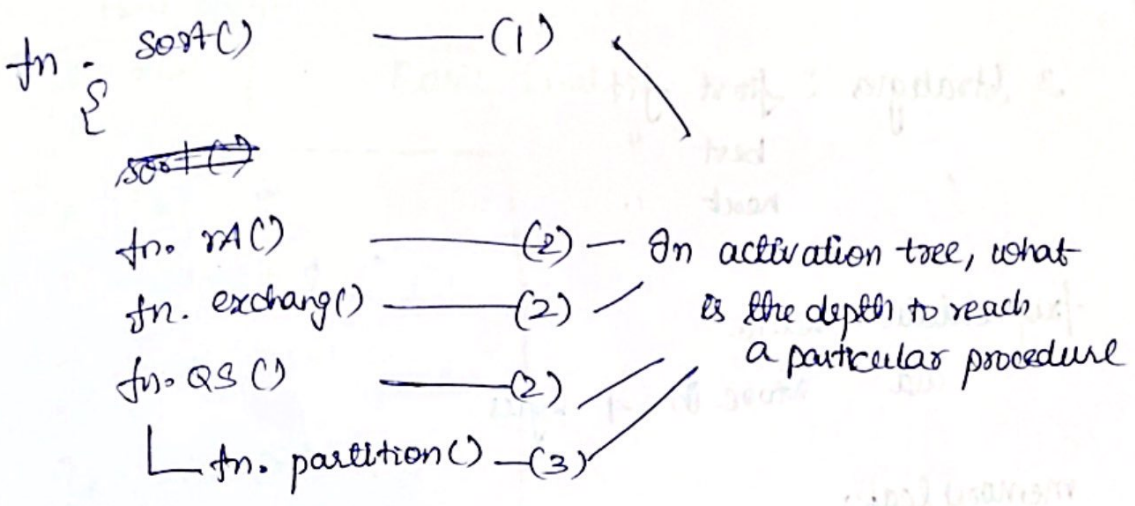 fn. sort() — (1)
{
sort()
fn. rA() — (2) — In activation tree, what
fn. exchang() — (2) is the depth to reach
a particular procedure
fn. QS() — (2)
fn. partition() — (3)